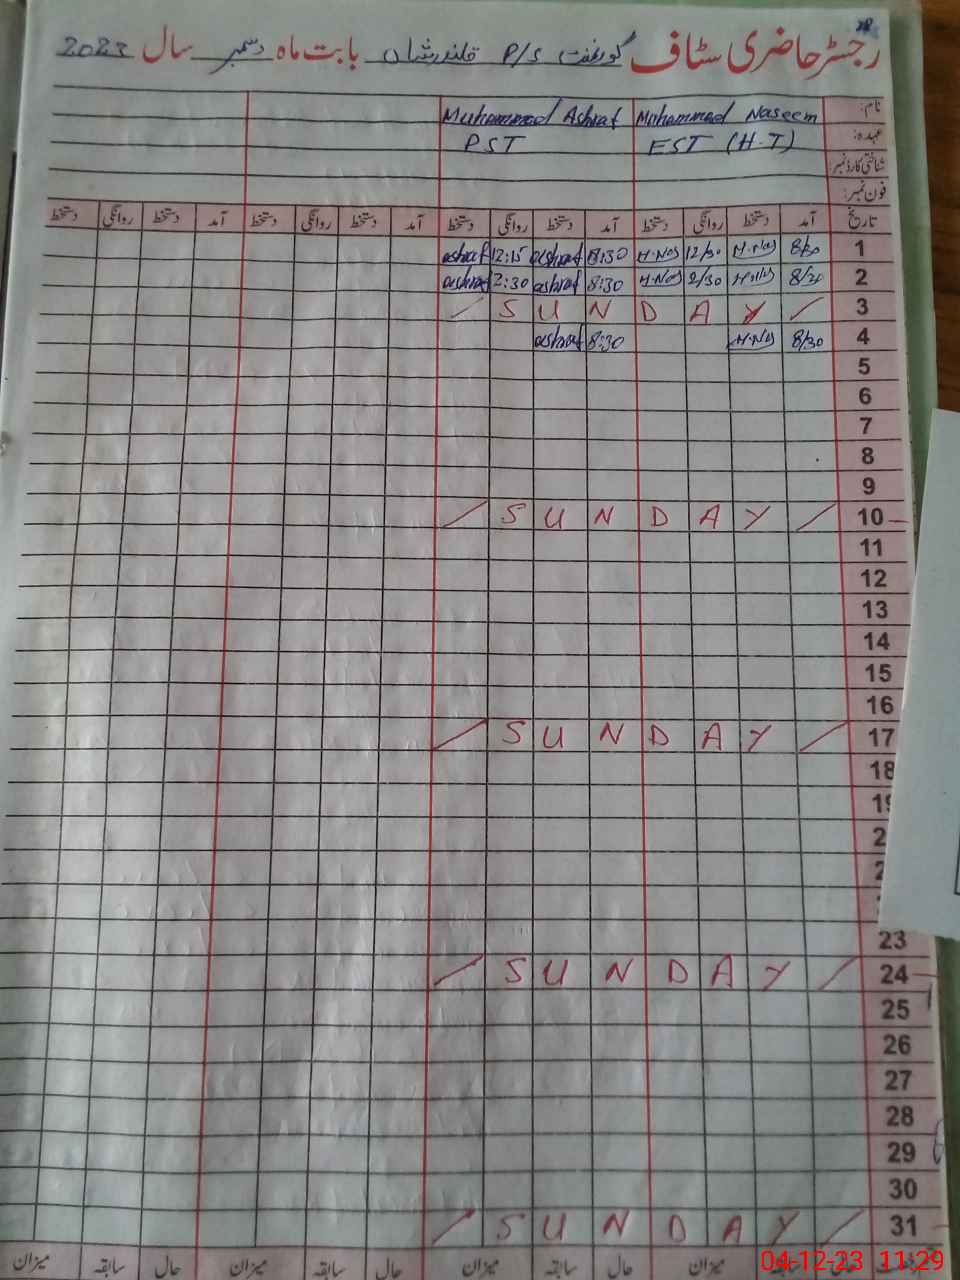 رجسٹر حاضری سٹاف گورنمنٹ P/S قلندرشاں بابت ماہ دسمبر سال 2023
نام: Muhammad Naseem Muhammad Ashraf
عہدہ: EST (H.T) PST
شناختی کارڈ نمبر:
فون نمبر:
تاریخ آمد دستخط روانگی دستخط آمد دستخط روانگی دستخط آمد دستخط روانگی دستخط آمد دستخط روانگی دستخط
1 8/30 H.Nas 12/30 H.Nas 8:30 ashraf 12:15 ashraf
2 8/30 H.Nas 2/30 H.Nas 8:30 ashraf 2:30 ashraf
3 SUNDAY
4 8/30 H.Nas 8:30 ashraf
5
6
7
8
9
10 SUNDAY
11
12
13
14
15
16
17 SUNDAY
18
23
24 SUNDAY
25
26
27
28
29
30
31 SUNDAY
سابقہ میزان حال سابقہ میزان حال سابقہ میزان حال سابقہ میزان
04-12-23 11:29